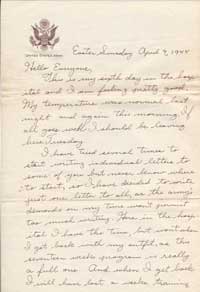 UNITED STATES ARMY
Easter Sunday April 9, 1944
Hello Everyone,
This is my sixth day in the hosp
ital and I am feeling pretty good.
My temperature was normal last
night and again this morning, if
all goes well I should be leaving
here Tuesday.
I have tried several times to
start writing individual letters to
some of you but never know where
to start, so I have decided to write
just one letter to all, as the army's
demands on my time won't permit
too much writing. Here in the hosp
ital I have the time, but won't when
I get back with my outfit, as this
seventeen weeks program is really
a full one. And when I get back
I will have lost a weeks training